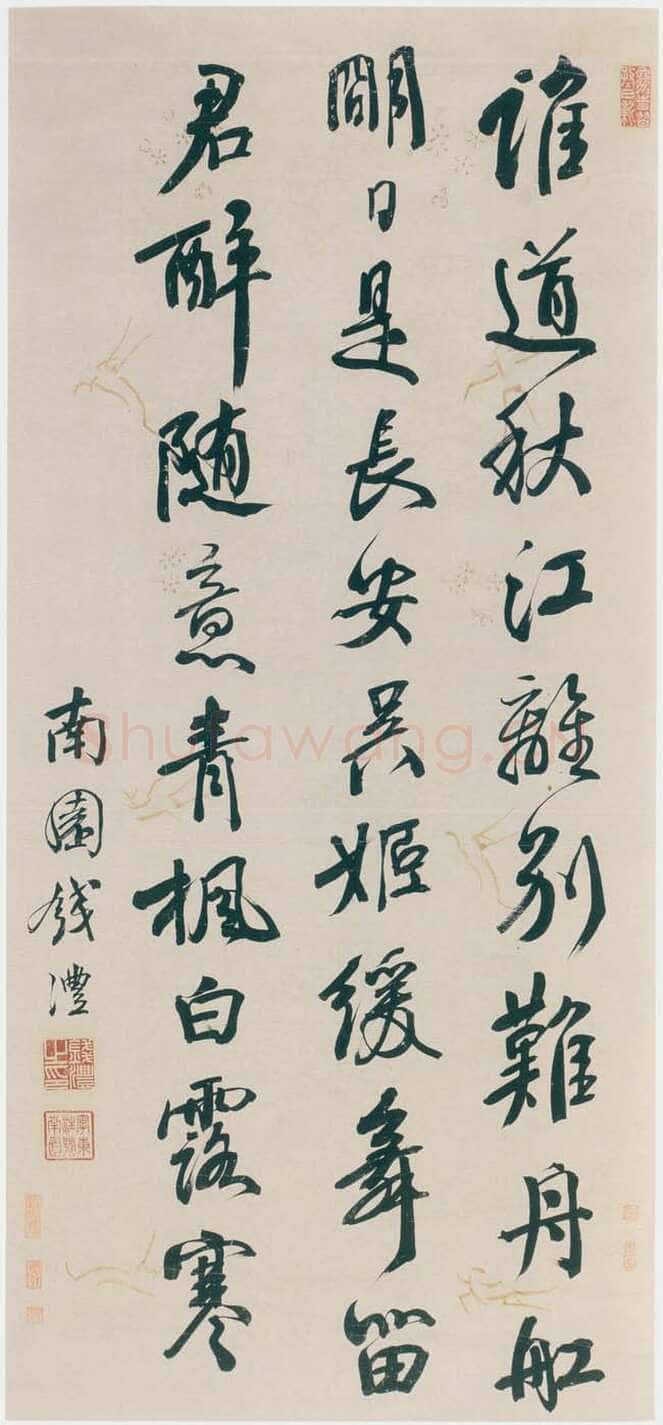 誰道秋江離別難舟舡
明日是長安吳姬緩舞留
君醉随意青楓白露寒
南園錢灃
錢灃之印